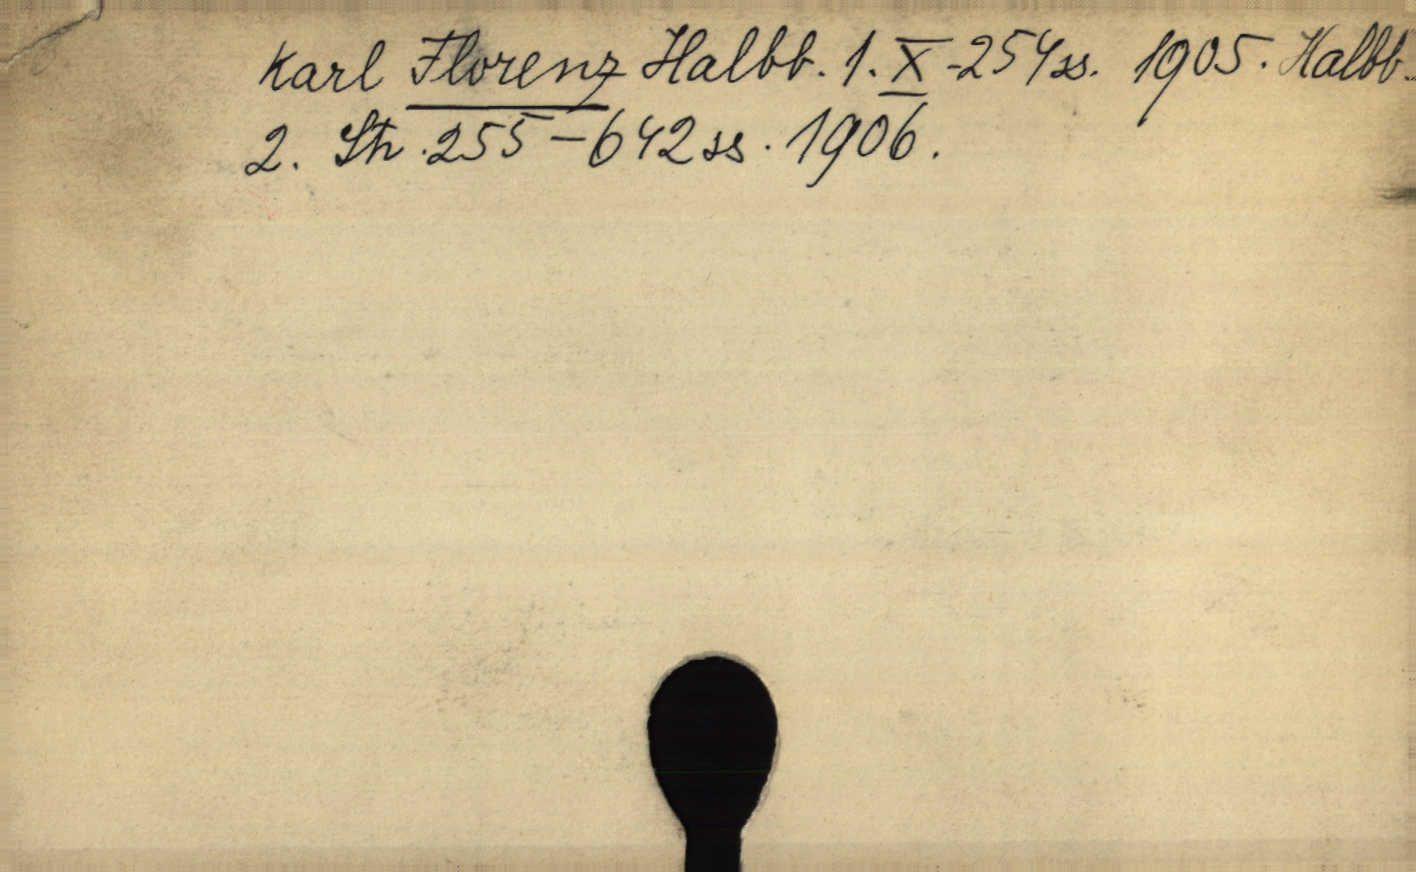 Karl Florenz Halbb. 1. X-254 ss. 1905. Halbb.
2. Str. 255-642 ss. 1906.